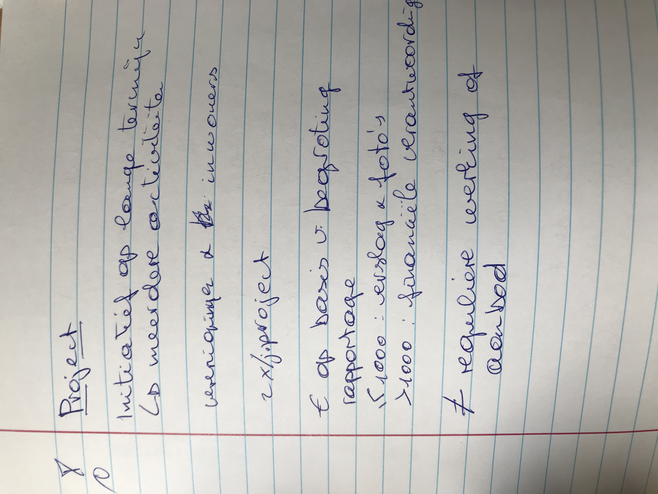 Project
Initiatief op lange termijn
↳ meerdere activiteiten
verenigingen & inwoners
2x/j. project
€ op basis v. begroting
rapportage
≤ 1000 : verslag & foto's
> 1000 : financiële verantwoording
≠ reguliere werking of
aanbod